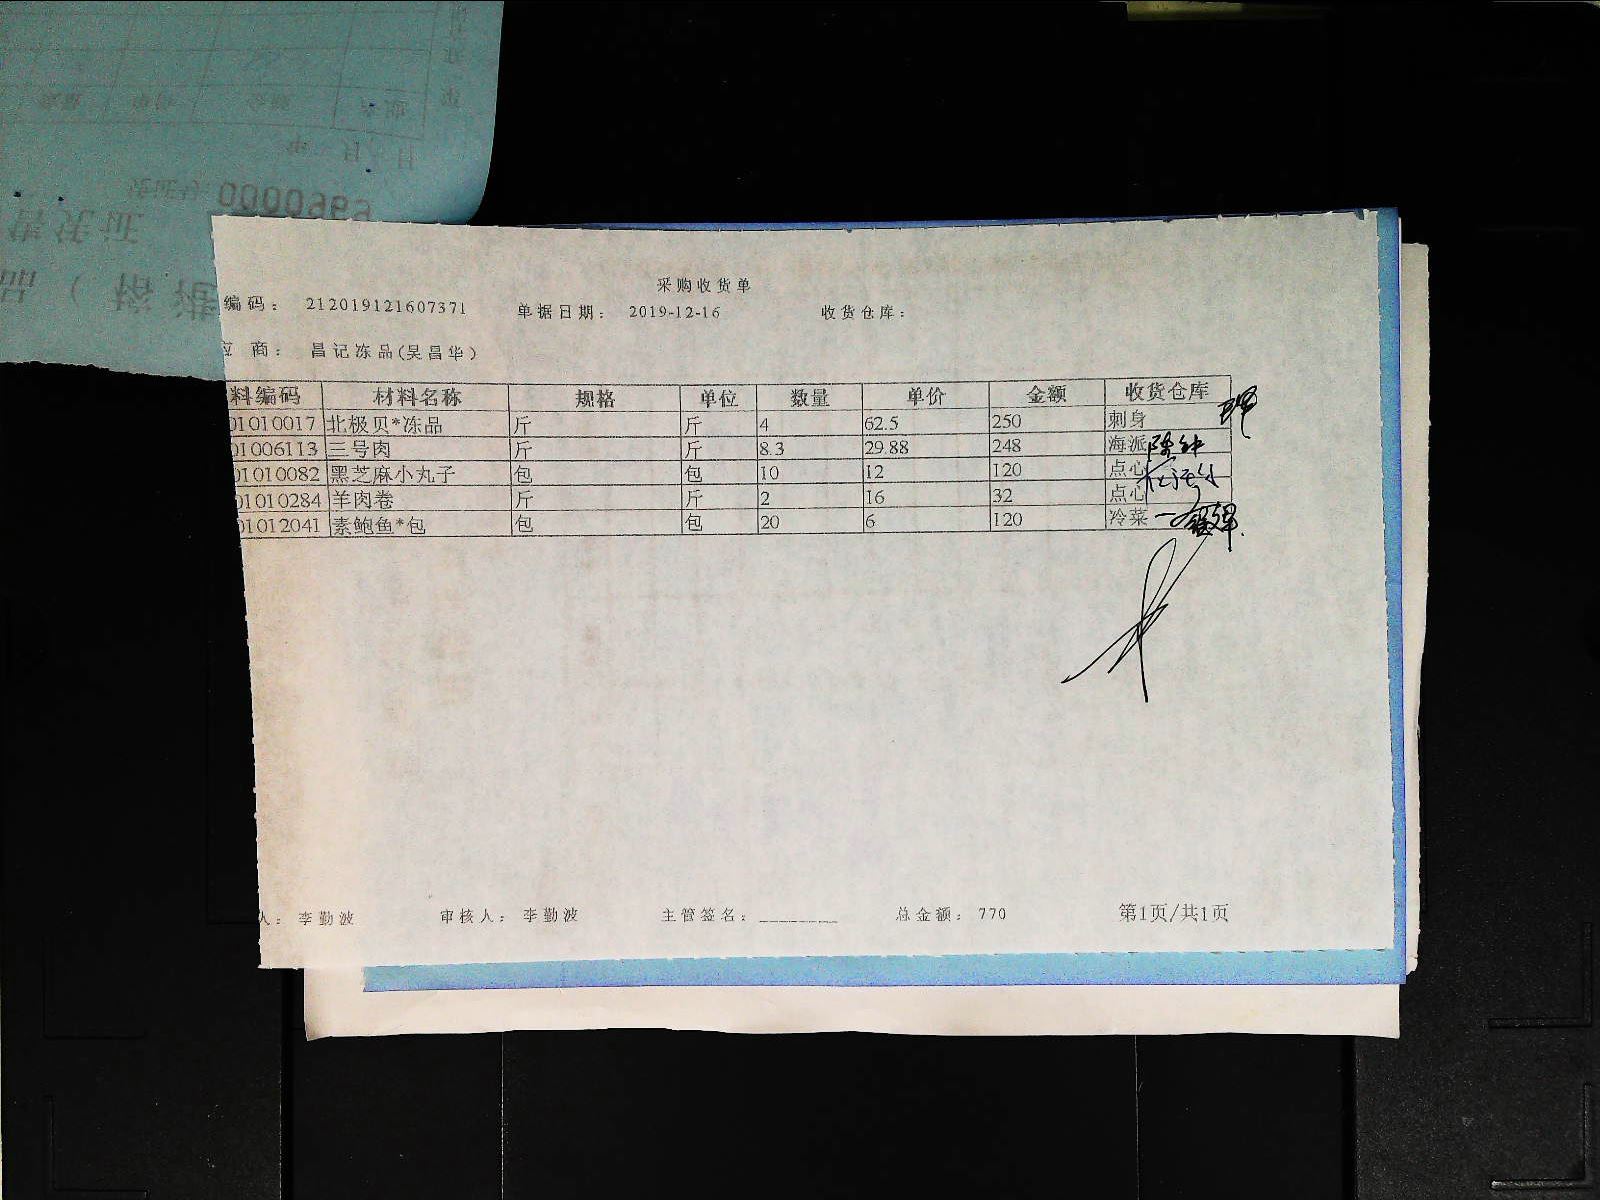 采购收货单
编码： 212019121607371 单据日期： 2019-12-16 收货仓库：
应 商： 昌记冻品(吴昌华)
料编码 材料名称 规格 单位 数量 单价 金额 收货仓库
01010017 北极贝*冻品 斤 斤 4 62.5 250 刺身
01006113 三号肉 斤 斤 8.3 29.88 248 海派
01010082 黑芝麻小丸子 包 包 10 12 120 点心
01010284 羊肉卷 斤 斤 2 16 32 点心
01012041 素鲍鱼*包 包 包 20 6 120 冷菜
人： 李勤波 审核人： 李勤波 主管签名： 总金额： 770 第1页/共1页